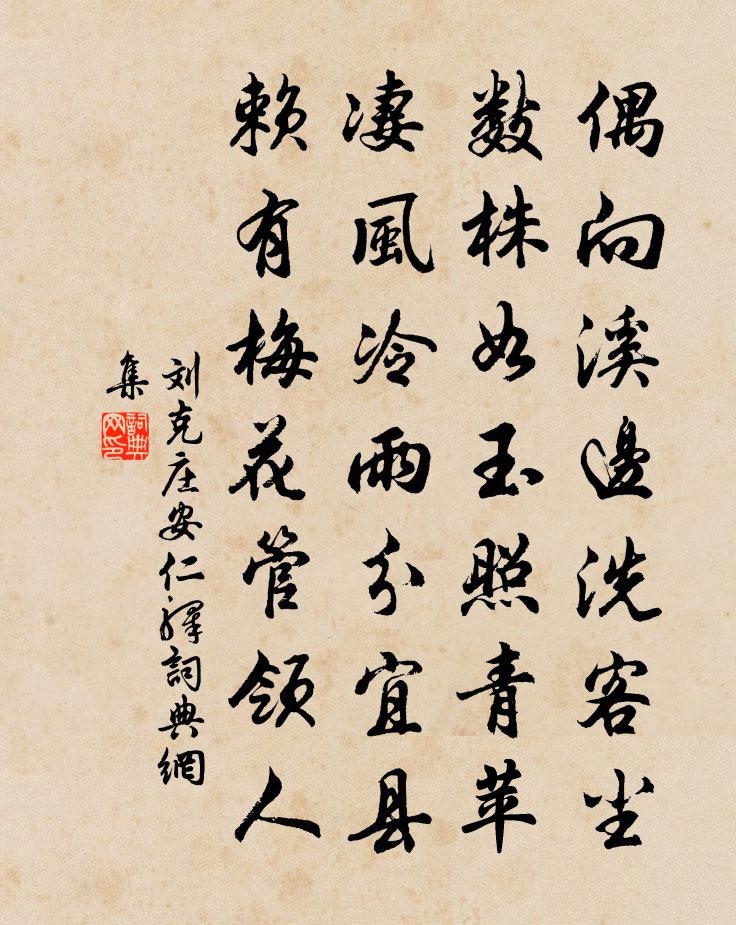 偶向溪邊洗客尘
数株如玉照青苹
凄風冷雨分宜县
赖有梅花管領人
刘克庄安仁驿詞典網
集
詞典网印